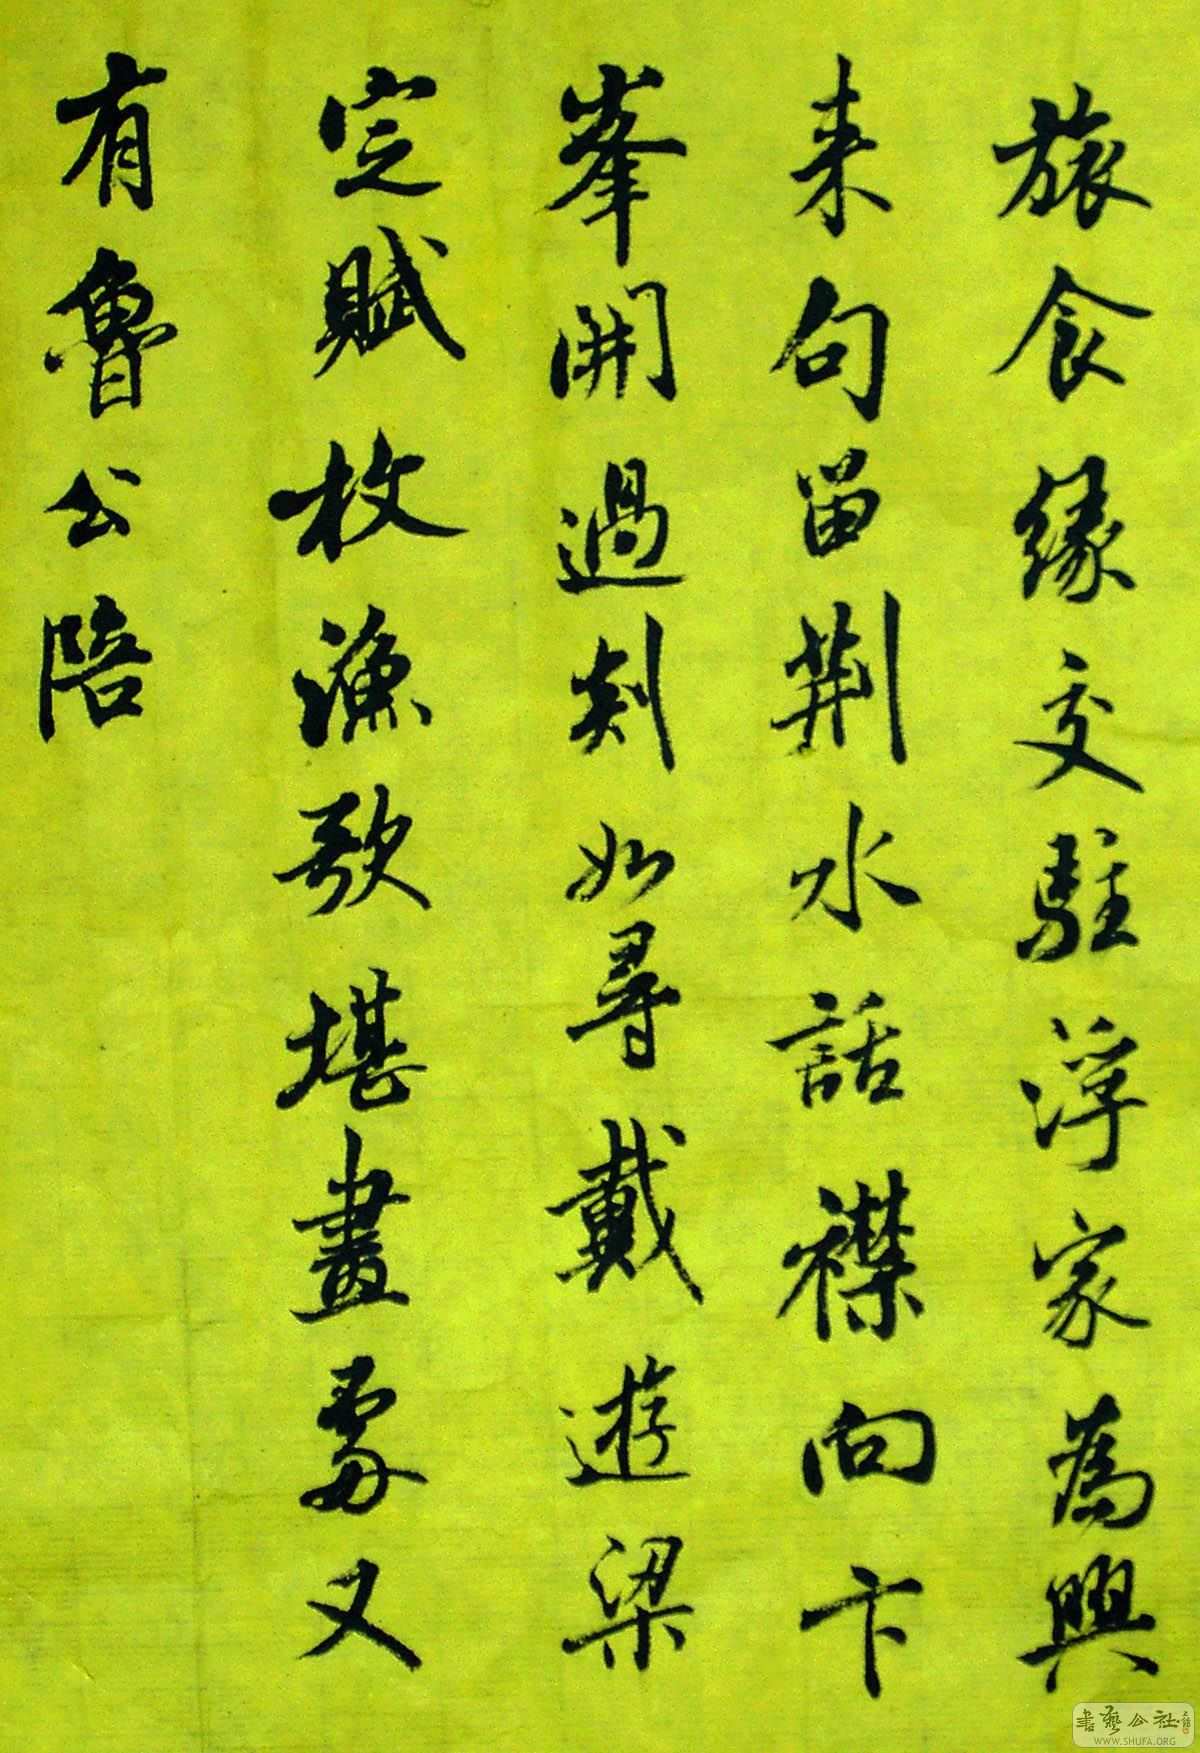 旅食緣交駐浮家為興
来句留荆水話襟向卞
峯開過剡如尋戴遊梁
定賦枚漁歌堪畫處又
有魯公陪
書藝公社
WWW.SHUFA.ORG